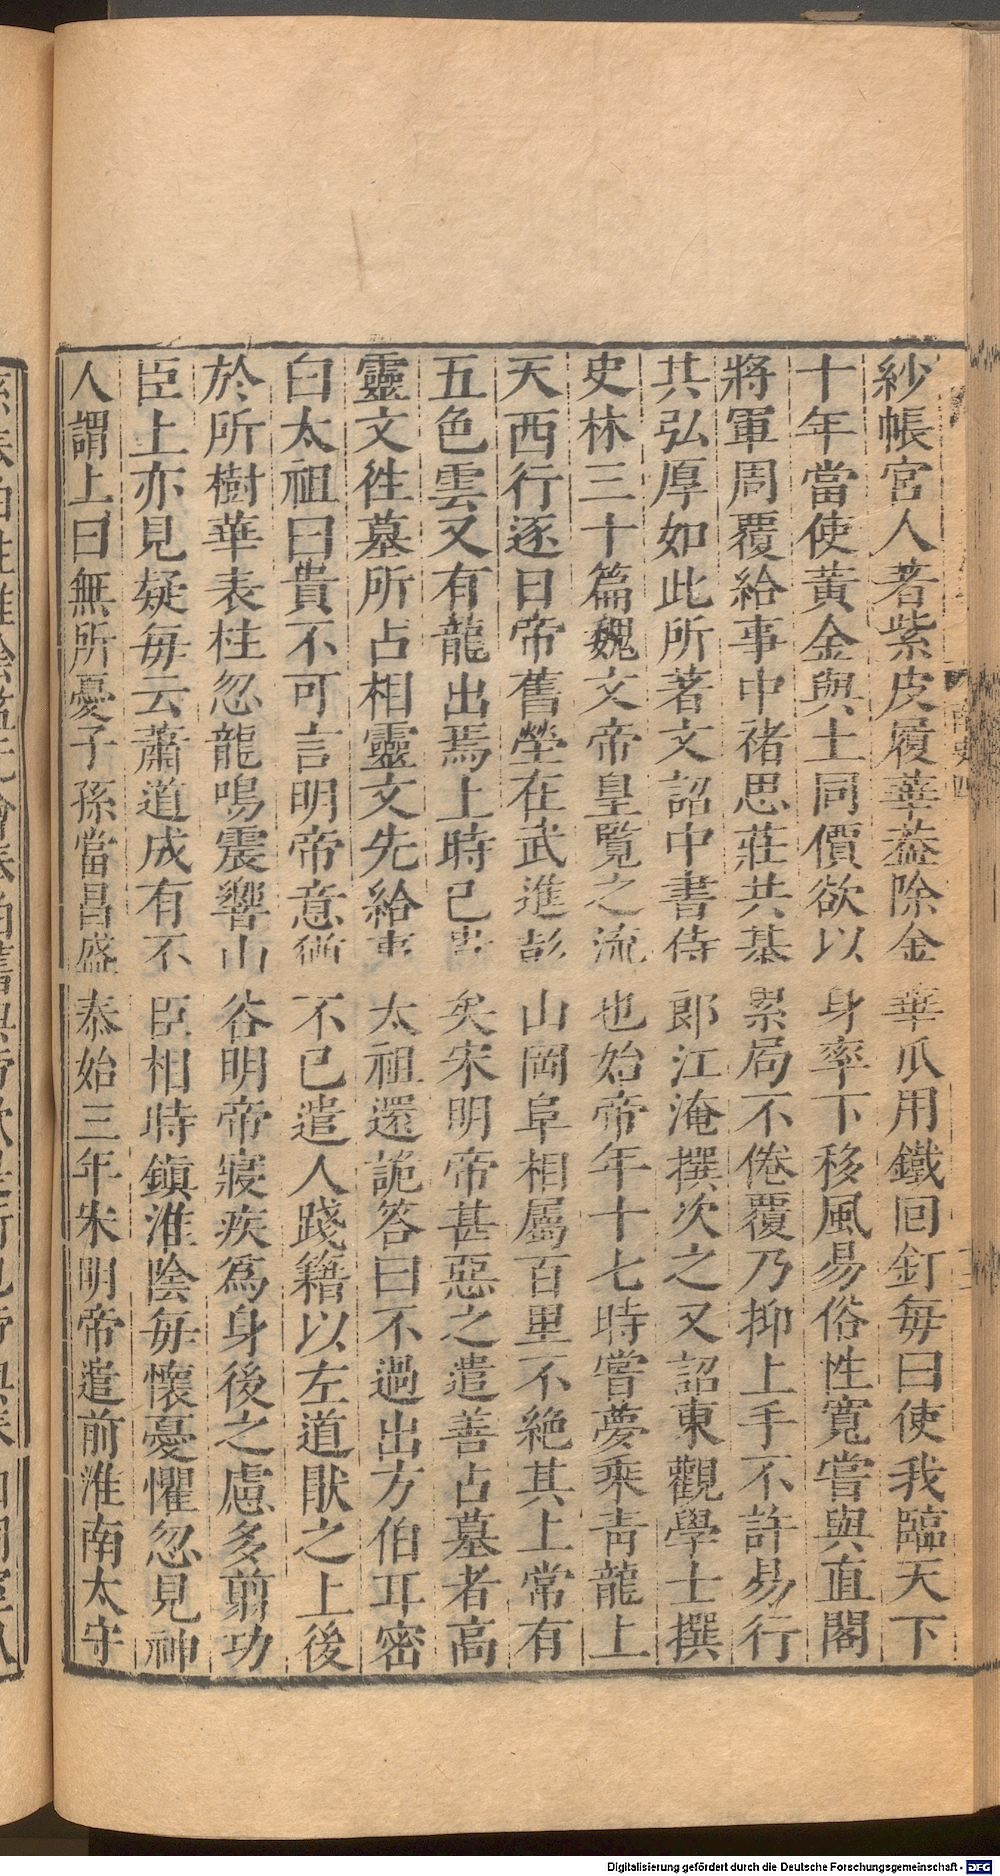 紗帳宮人著紫皮履華葢除金華爪用鐵回釘每曰使我臨天下
十年當使黃金與土同價欲以身率下移風易俗性寬嘗與直閣
將軍周覆給事中褚思莊共棊累局不倦覆乃抑上手不許易行
其弘厚如此所著文詔中書侍郎江淹撰次之又詔東觀學士撰
史林三十篇魏文帝皇覽之流也始帝年十七時嘗夢乘青龍上
天西行逐日帝舊塋在武進彭山岡阜相屬百里不絶其上常有
五色雲又有龍出焉上時已貴矣宋明帝甚惡之遣善占墓者高
靈文徃墓所占相靈文先給事太祖還詭答曰不過出方伯耳密
白太祖曰貴不可言明帝意猶不已遣人踐籍以左道猒之上後
於所樹華表柱忽龍鳴震響山谷明帝寢疾爲身後之慮多翦功
臣上亦見疑每云蕭道成有不臣相時鎮淮陰每懷憂懼忽見神
人謂上曰無所憂子孫當昌盛泰始三年宋明帝遣前淮南太守
Digitalisierung gefördert durch die Deutsche Forschungsgemeinschaft - DFG